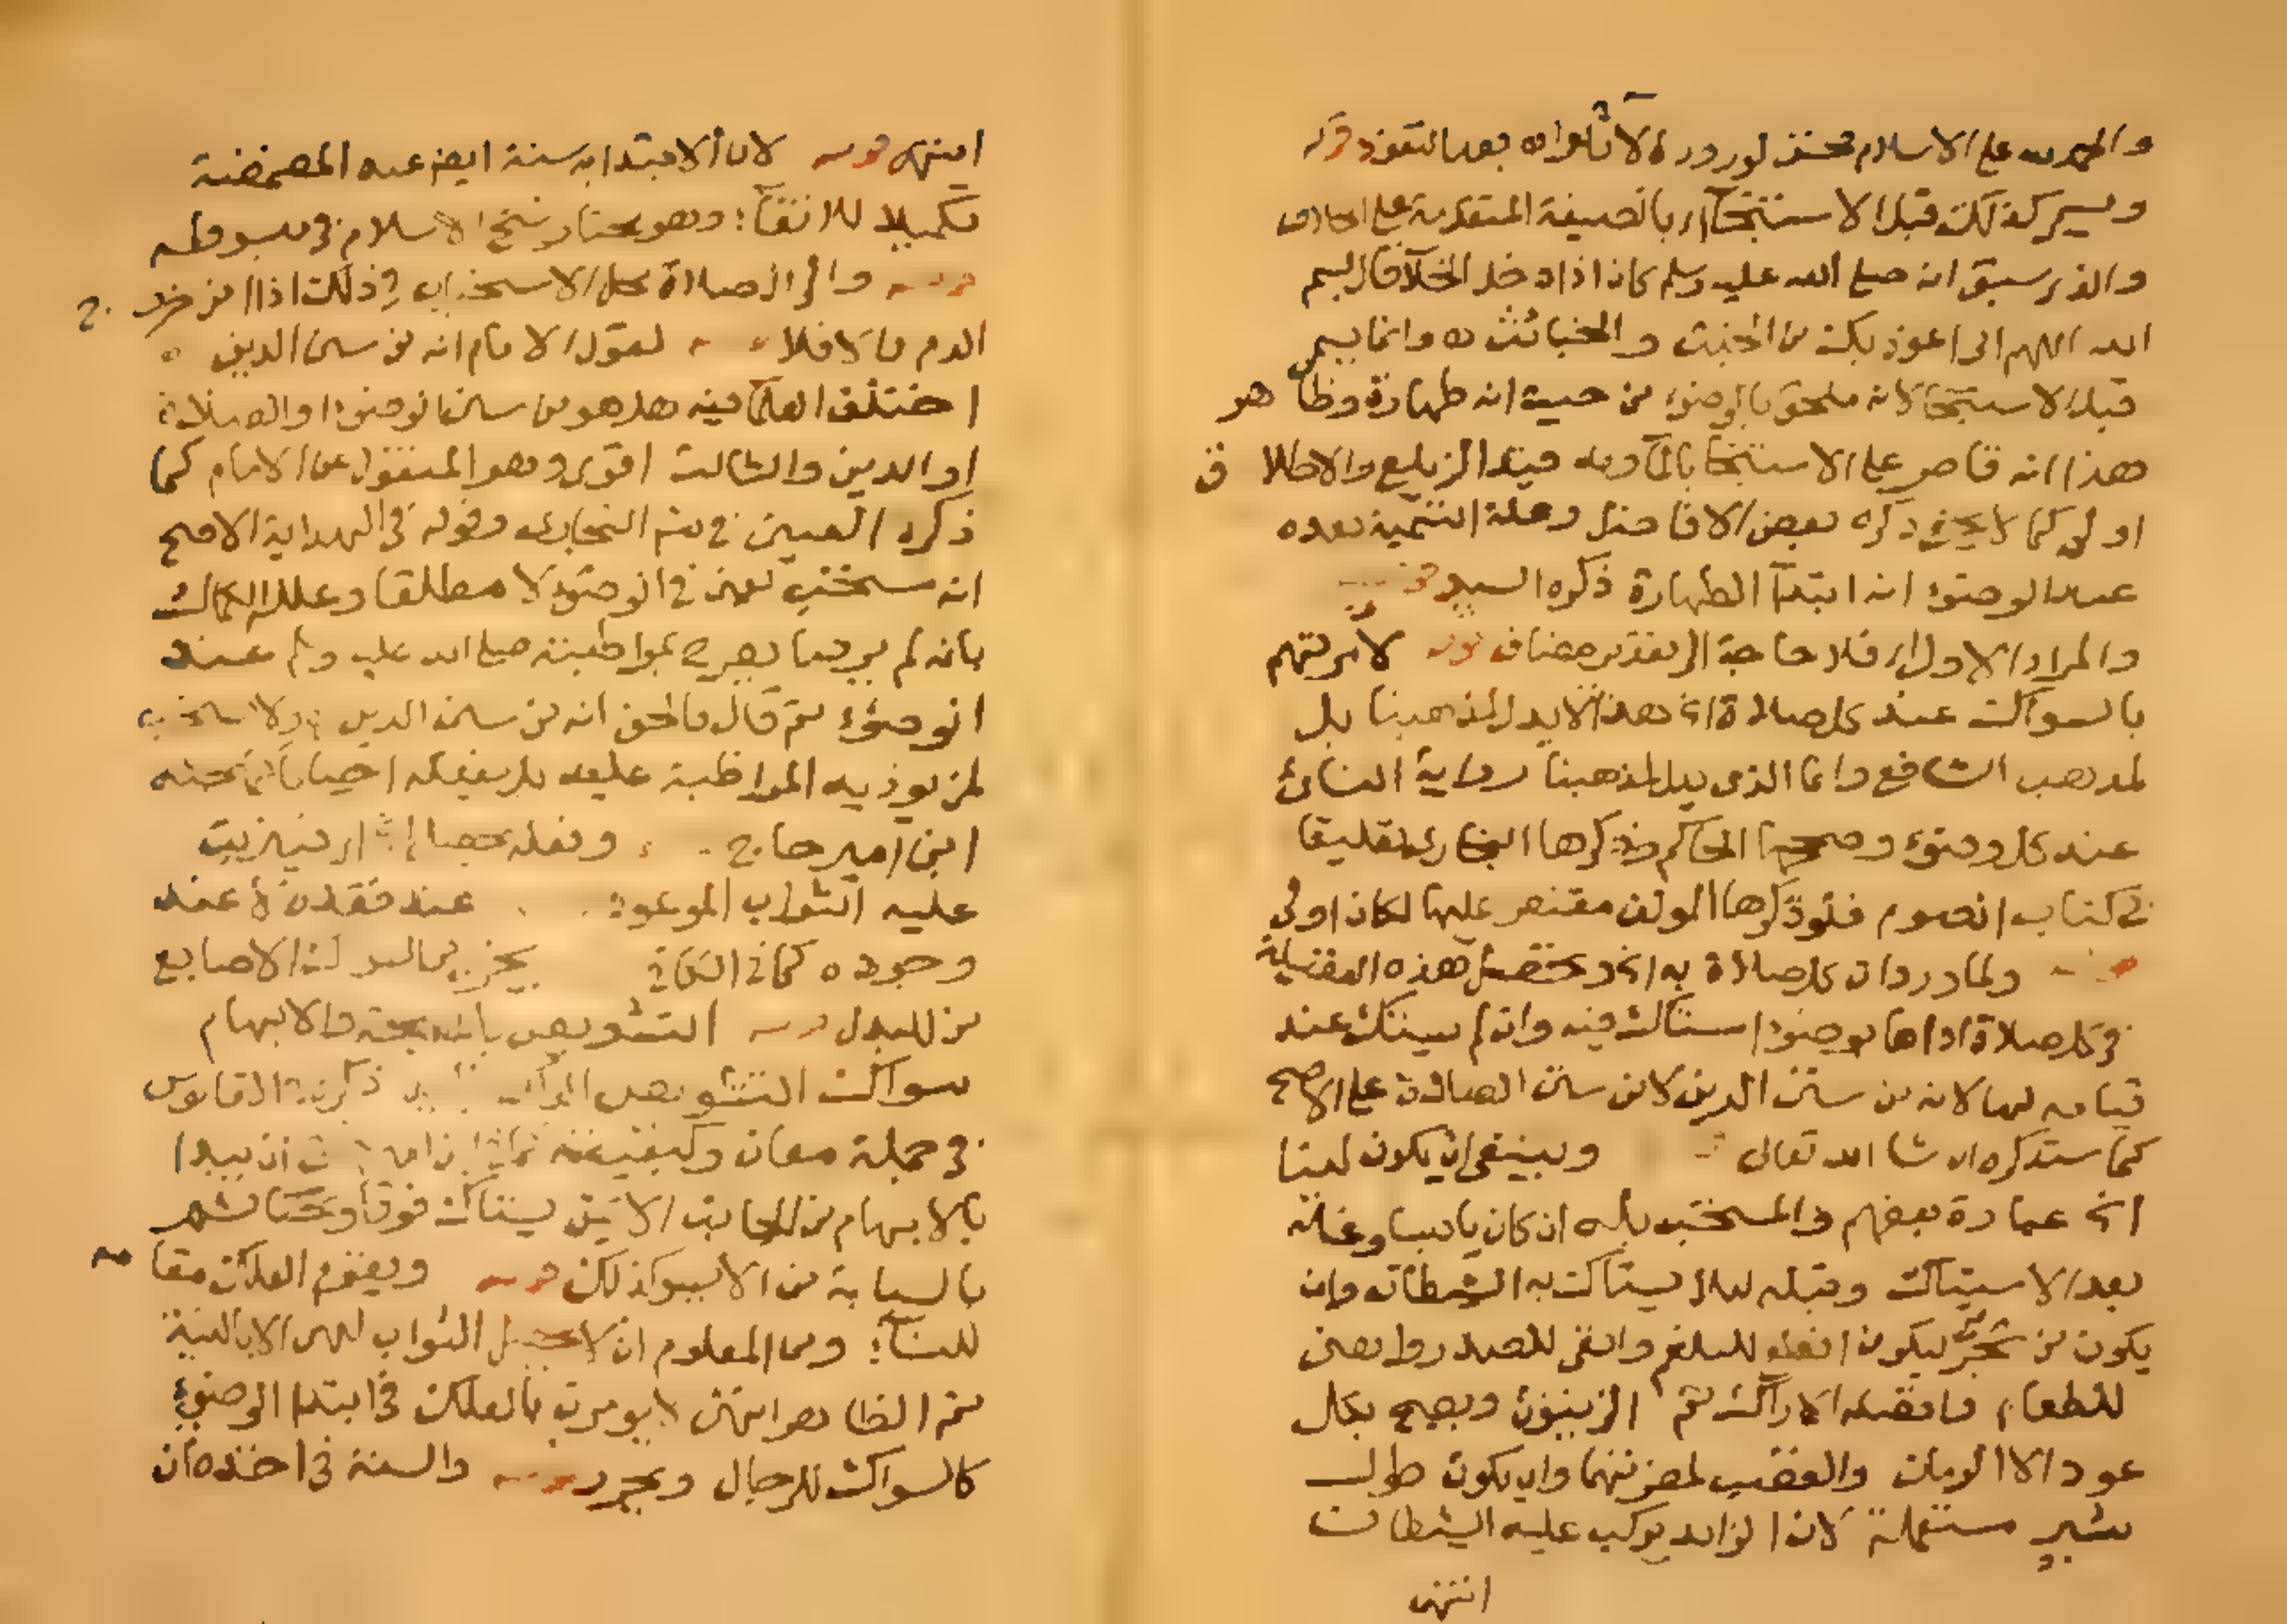 والحمد لله على الاسلام لورود الآثار به بعد التعوذ قوله
ويسمي كذلك قبل الاستنجآ اي بالصيغة المتقدمة على
والذي سبق انه صلى الله عليه وسلم كان اذا دخل الخلآ قال بسم
الله اللهم اني اعوذ بك من الخبث والخبائث وانما يسمي
قبل الاستنجا لانه ملحق بالوضوء من حيث انه طهارة وظا هو
هذا انه قاصر على الاستنجا بالمآ وبه قيد الزيلعي والاطلا ق
اولى كما لا يخفى ذكره بعض الافاضل وعلة التسمية بعده
عند الوضوء انه ابتدآ الطهارة ذكره السيد
والمراد الاول فلا حاجة الى تقدير مضاف قوله لامرتهم
بالسواك عند كل صلاة الخ هذا لا يدل لمذهبنا بل
لمذهب الشافعي واما الذي يدل لمذهبنا رواية النسائي
عند كل وضوء وصححها الحاكم وذكرها البخاري تعليقا
في كتاب الصوم فلو ذكرها المولف مقتصر عليها لكان اولى
ولما ورد ان كل صلاة به الخ وتحصل هذه الفضيلة
في كل صلاة اداها بوضوء استاك فيه وان لم يستك عند
قيامه لها لانه من سنن الدين لا من سنن الصلاة على الاصح
كما ستذكره ان شا الله تعالى وينبغي ان يكون لينا
الخ عبارة بعضهم والمستحب بله ان كان يابسا وغسله
بعد الاستياك وقبله لئلا يستاك به الشيطان وان
يكون من شجر ليكون اقطع للبلغم وانقى للصدر واهضى
للطعام وافضله الاراك ثم الزيتون ويصح بكل
عود الا الرمان والقصب لمضرتهما وان يكون طول
شبر مستعملة لان الزائد يركب عليه الشيطان
انتهى
انتهى قوله لان الابتدا به سنة ايضا عند المضمضة
تكميلا للانقآء وهو مختار شيخ الاسلام في مبسوطه
قوله والى الصلاة محل الاستحباب في ذلك اذا امن خروج
الدم والا فلا لقول الامام انه من سنن الدين
اختلف العلمآ فيه هل هو من سنن الوضوء او الصلاة
او الدين والثالث اقوى وهو المنقول عن الامام كما
ذكره العيني في شرح البخاري وقوله في الهداية الاصح
انه مستحب يعني في الوضوء لا مطلقا وعلل الكمال
بانه لم يرد ما يصرح بمواظبته صلى الله عليه وسلم عند
الوضوء ثم قال فالحق انه من سنن الدين
المواظبة عليه بل يفعله احيانا كما بحثه
ابن امير حاج وفضله يحصل
عليه الثواب الموعود عند فقده لا عند
وجوده كما في الكافي يخير بما لسر لان الاصابع
قوله التشويص بالمسبحة والابهام
سواك التشويص ذكره في القاموس
في جملة معان وكيفيته ان يبدا
بالابهام من الجانب الايمن يستاك فوقا وتحتا ثم
بالسبابة من الايسر كذلك قوله ويقوم العلك مقا مه
للنسآء ومن المعلوم ان لا يحصل الثواب لهن الا بالنية
ثم الظاهر انهن لا يومرن بالعلك في ابتدا الوضوء
كالسواك للرجال ويحرر قوله والسنة في اخذه ان